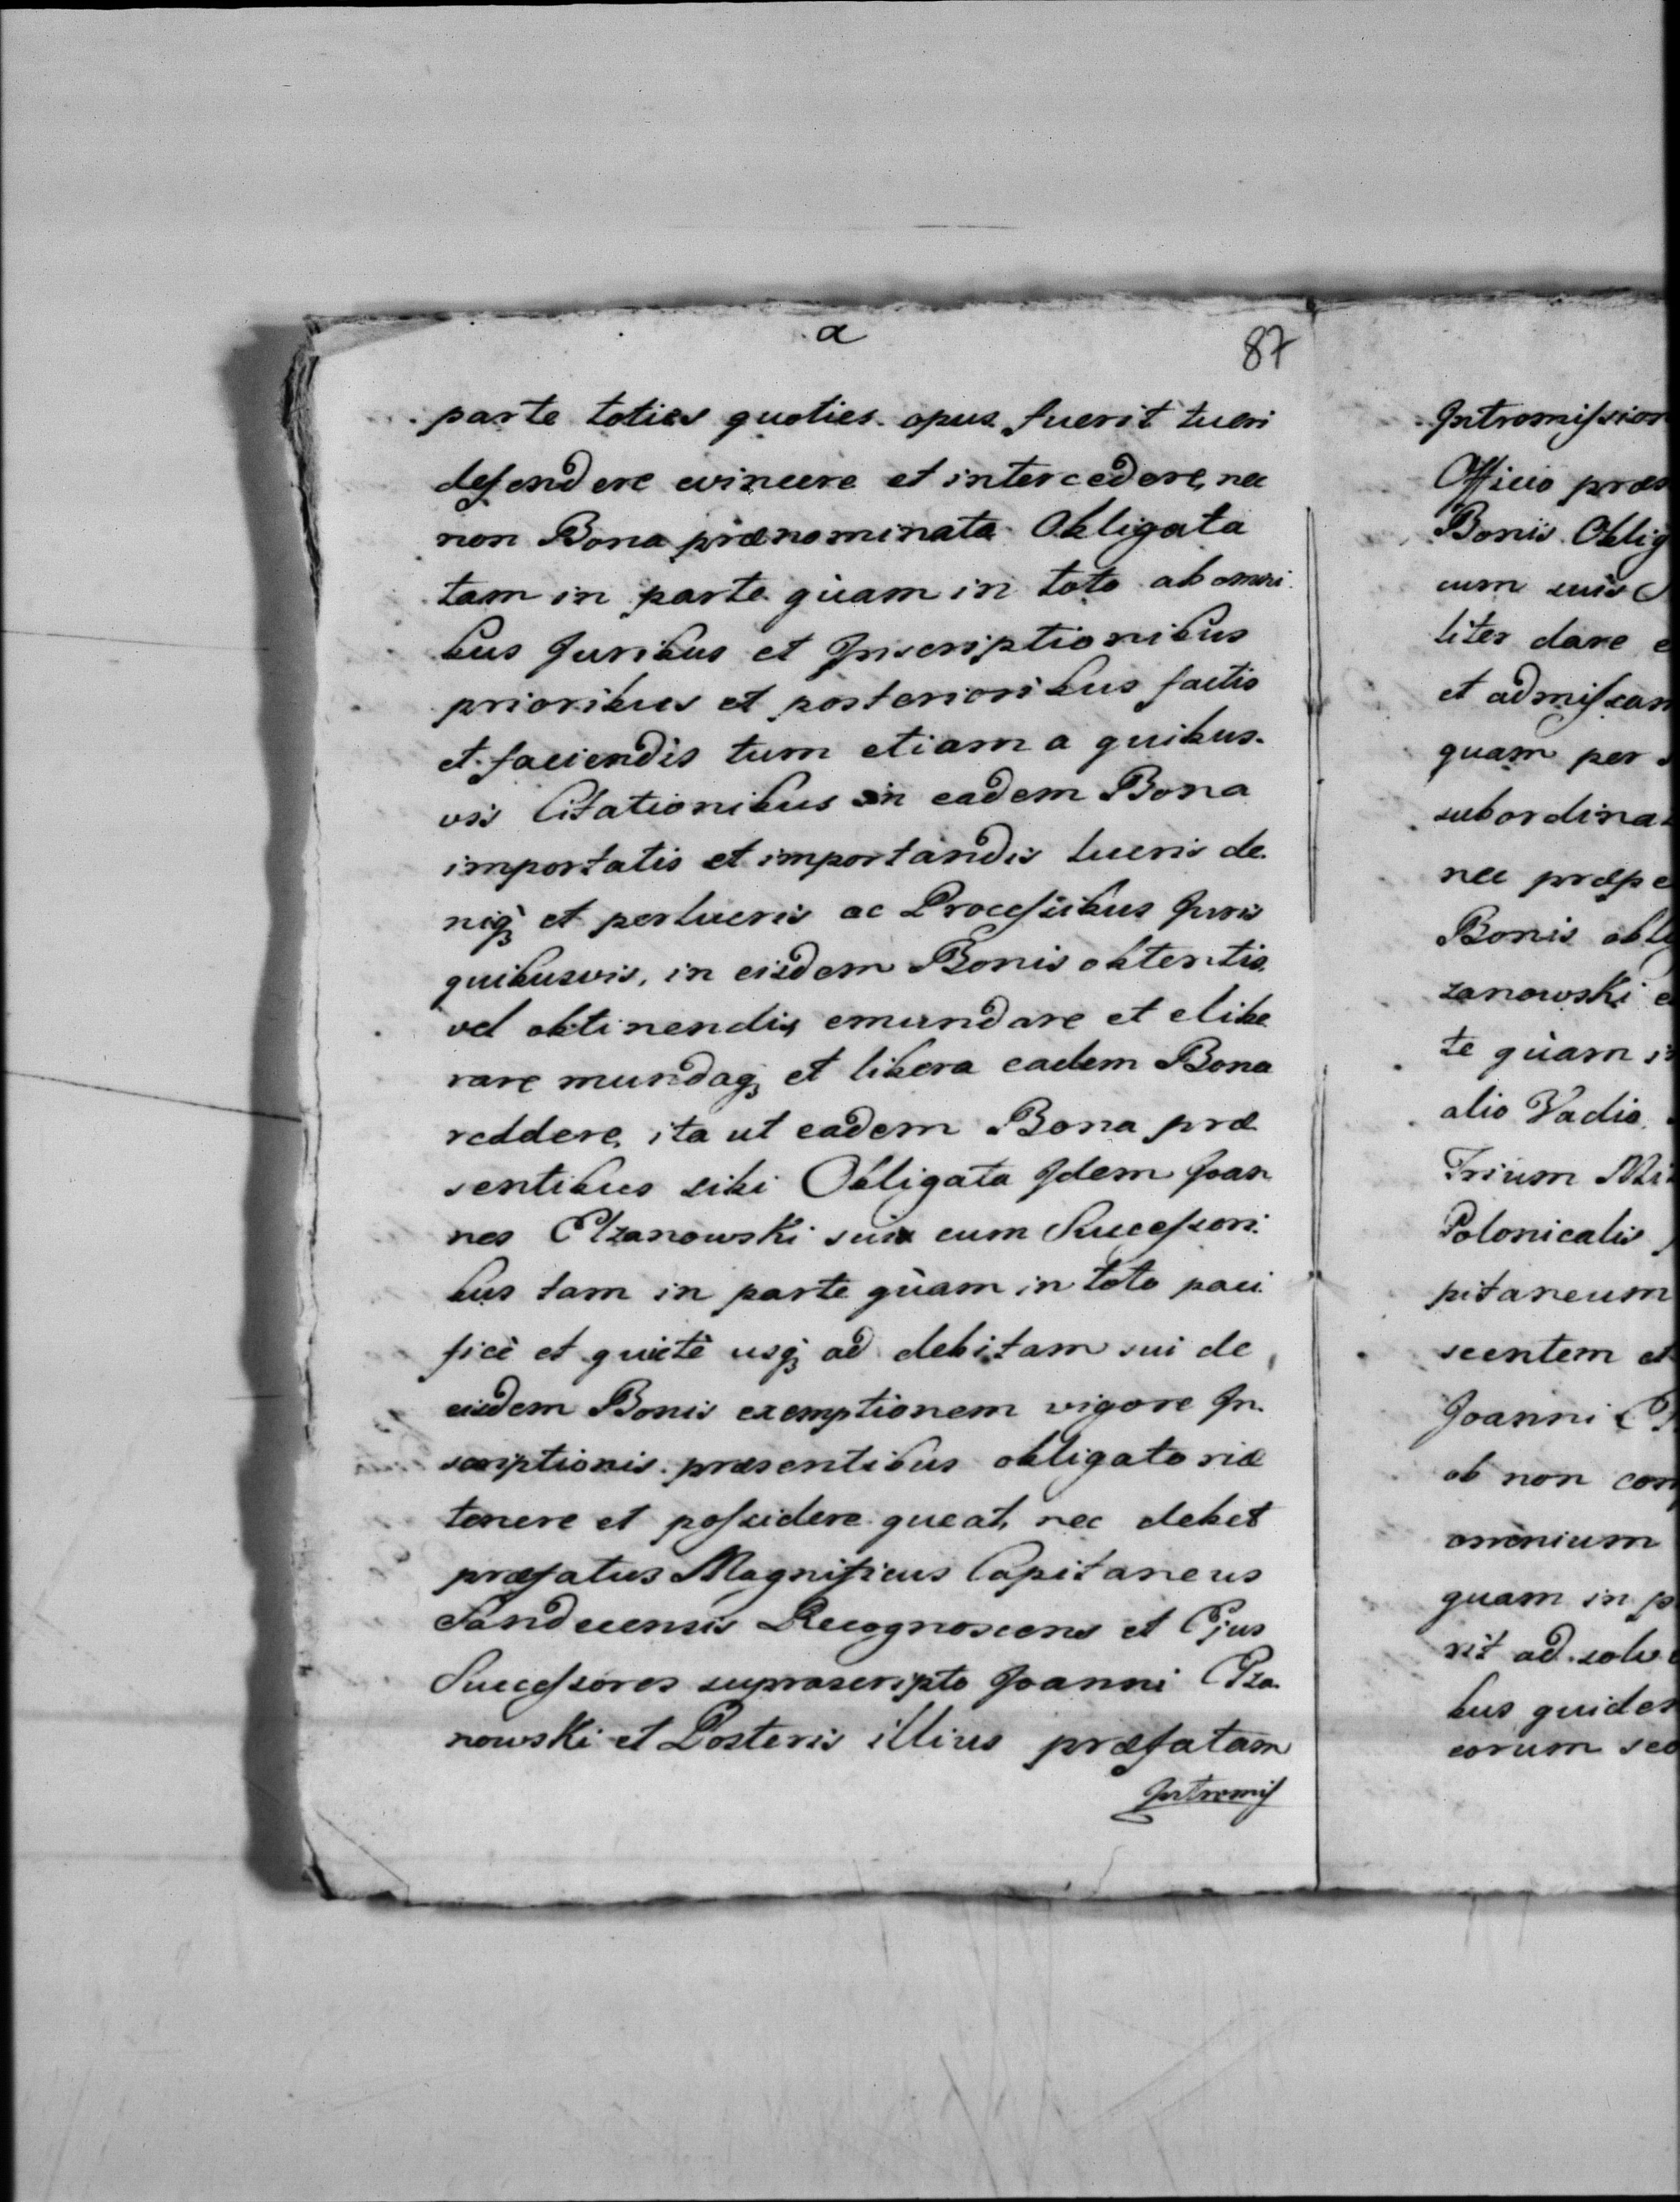 a
87
parte toties quoties opus fuerit tueri
defendere evincere et intercedere, nec
non Bona prænominata Obligata
tam in parte quàm in toto ab omni
bus Juribus et Inscriptionibus
prioribus et posterioribus factis
et faciendis tum etiam a quibus
vis Citationibus in eadem Bona
importatis et importandis lucris de
niq3 et perlucris ac Processibus Juris
quibusvis, in eisdem Bonis obtentis
vel obtinendis emundare et elibe
rare mundaq3 et libera eadem Bona
reddere, ita ut eadem Bona præ
sentibus sibi Obligata Idem Joan
nes Elzanowski suis cum Successori
bus tam in parte quàm in toto paci
ficè et quietè usq3 ad debitam sui de
eisdem Bonis exemptionem vigore In
scriptionis præsentibus obligatoriæ
tenere et possidere queat, nec debet
præfatus Magnificus Capitaneus
Sandecensis Recognoscens et Ejus
Successores suprascripto Joanni Elza
nowski et Posteris illius præfatam
Intromis
Intromission
Officio præs
Bonis Oblig
cum suis
liter dare e
et admissam
quam per s
subordinat
nec præpe
Bonis oblig
zanowski e
te quàm i
alio Vadio
Trium Mil
Polonicalis
pitaneum
scentem et
Joanni E
ob non com
omnium
quam in p
rit ad solv
bus quidem
eorum sec